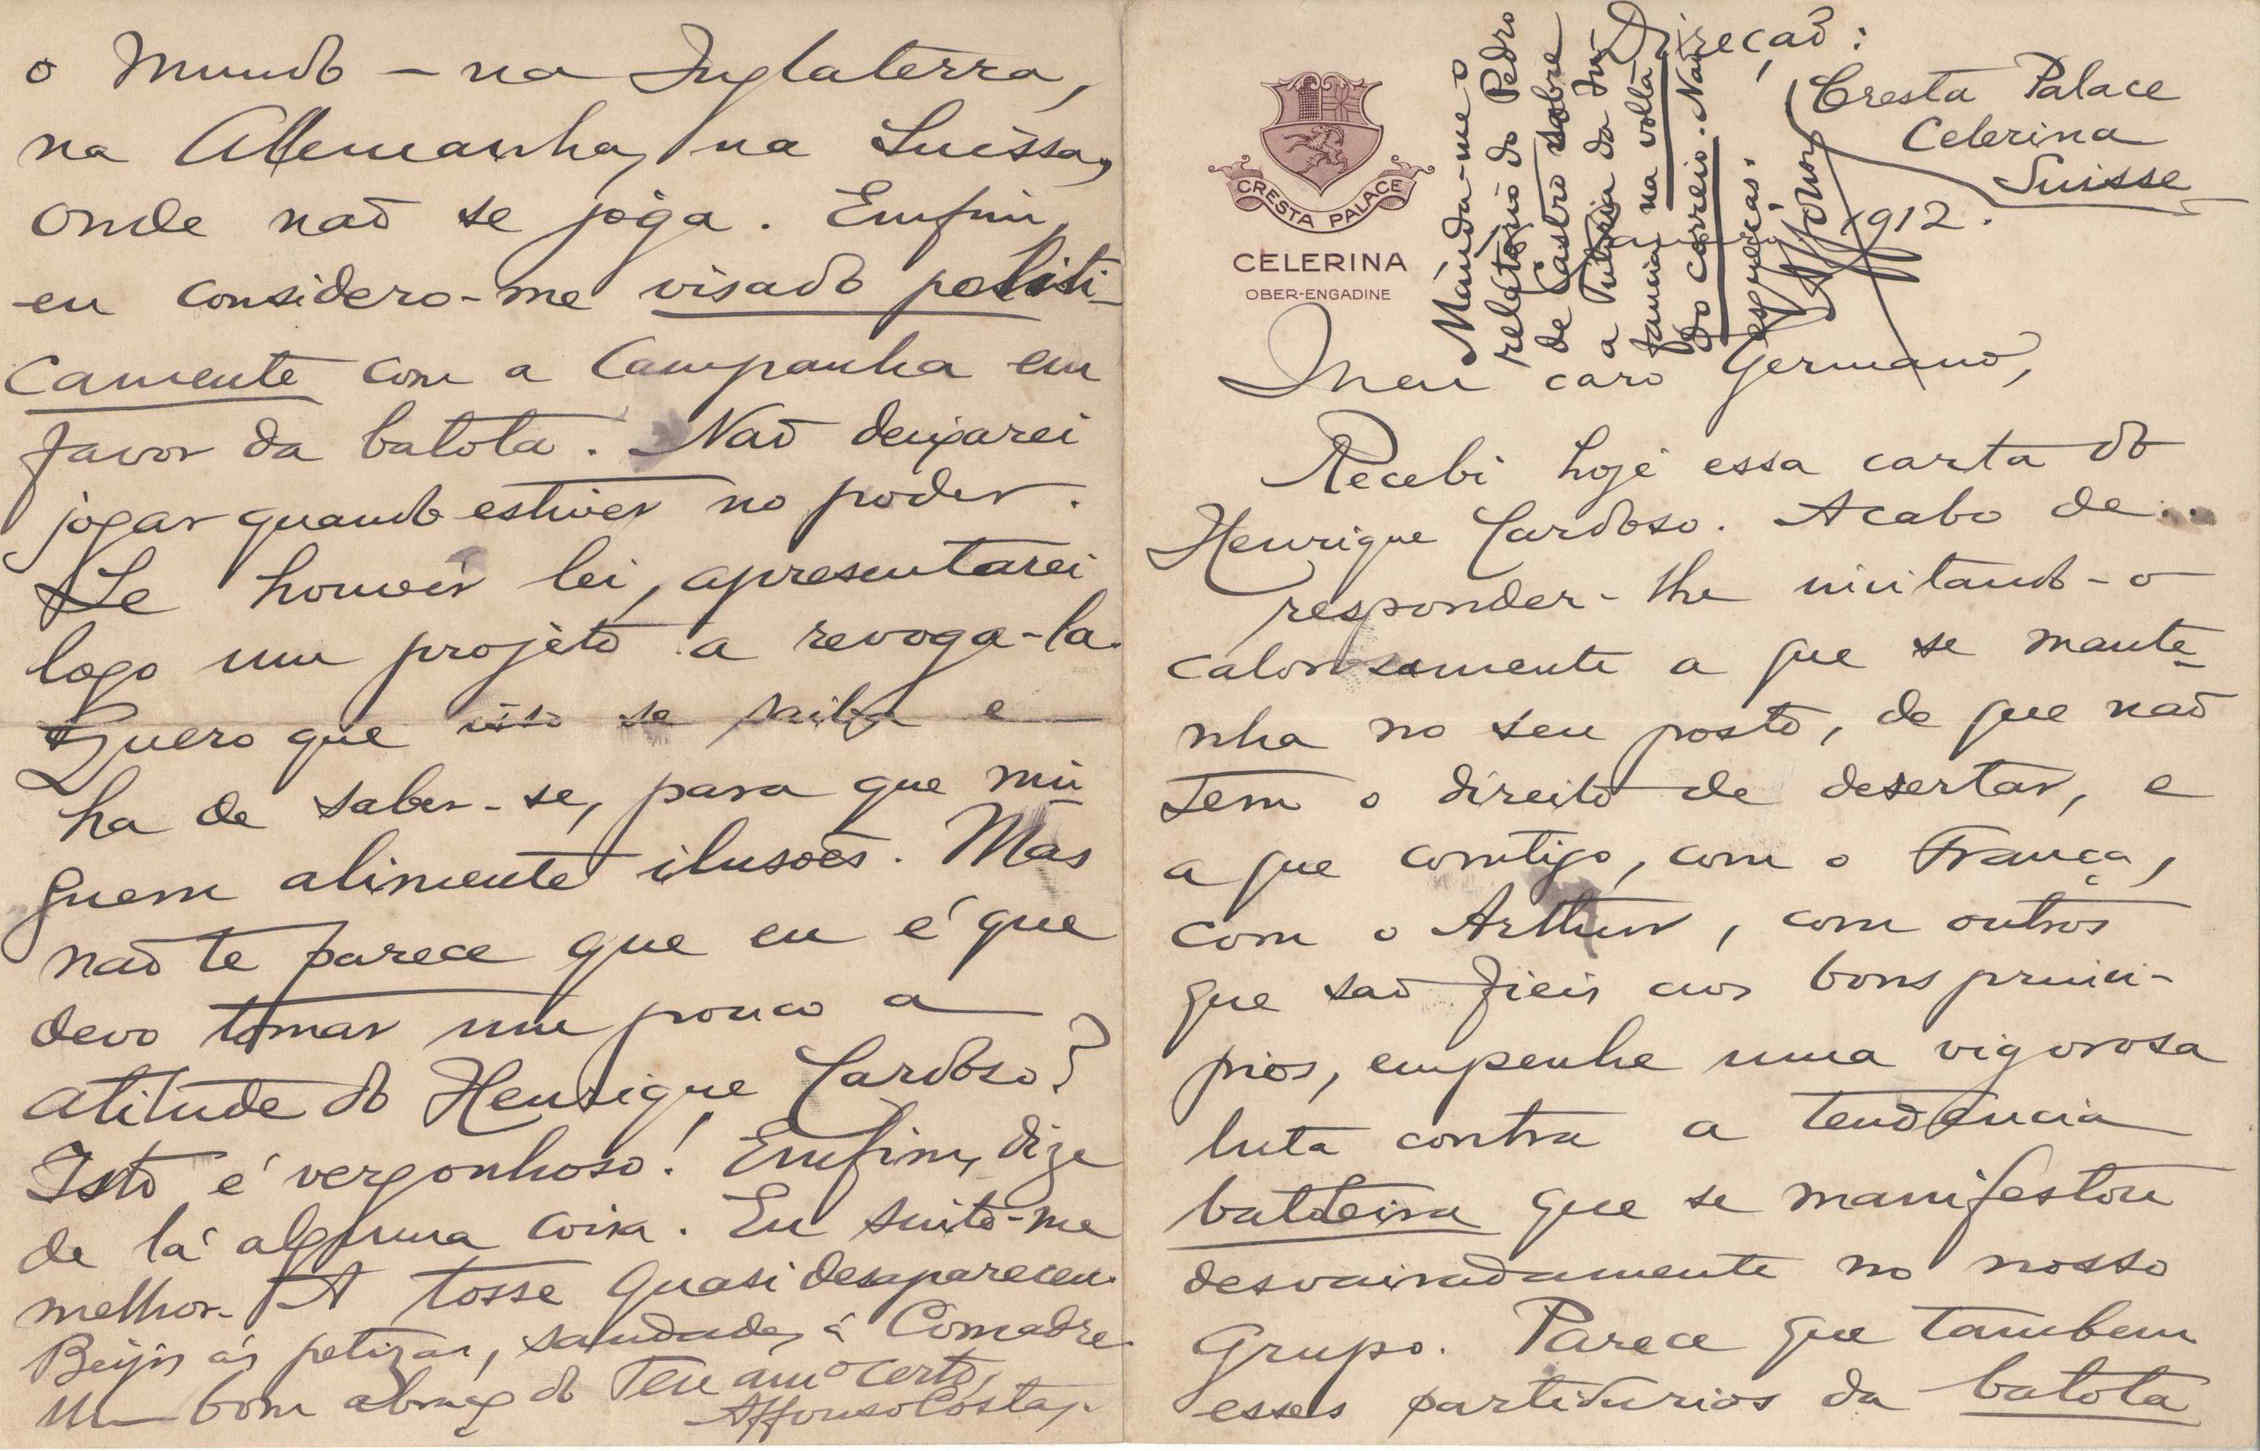 CRESTA PALACE
CELERINA
OBER-ENGADINE
Direcção:
Cresta Palace
Celerina
Suisse
1912.
Manda-me o
relatório do Pedro
de Castro sobre
a Tutoria da In-
fancia na volta
do correio. Não
esqueças.
Affonso
Meu caro Germano,
Recebi hoje essa carta do
Henrique Cardoso. Acabo de
responder-lhe incitando-o
calorosamente a que se mante-
nha no seu posto, de que não
tem o direito de desertar, e
a que comtigo, com o França,
com o Arthur, com outros
que são fieis aos bons princi-
pios, empenhe uma vigorosa
luta contra a tendencia
batoteira que se manifestou
desvairadamente no nosso
Grupo. Parece que tambem
esses partidarios da batota
o Mundo – na Inglaterra,
na Allemanha, na Suissa,
onde não se joga. Emfim,
eu considero-me visado politi-
camente com a campanha em
favor da batota. Não deixarei
jogar quando estiver no poder.
Se houver lei, apresentarei
logo um projéto a revoga-la.
Quero que isso se saiba e
ha de saber-se, para que nin-
guem alimente ilusões. Mas
não te parece que eu é que
devo tomar um pouco a
atitude do Henrique Cardoso?
Isto é vergonhoso! Emfim, dize
de lá alguma coisa. Eu sinto-me
melhor. A tosse quasi desapareceu.
Beijos ás petizas, saudades á Comadre
Um bom abraço do Teu amº certo,
Affonso Costa